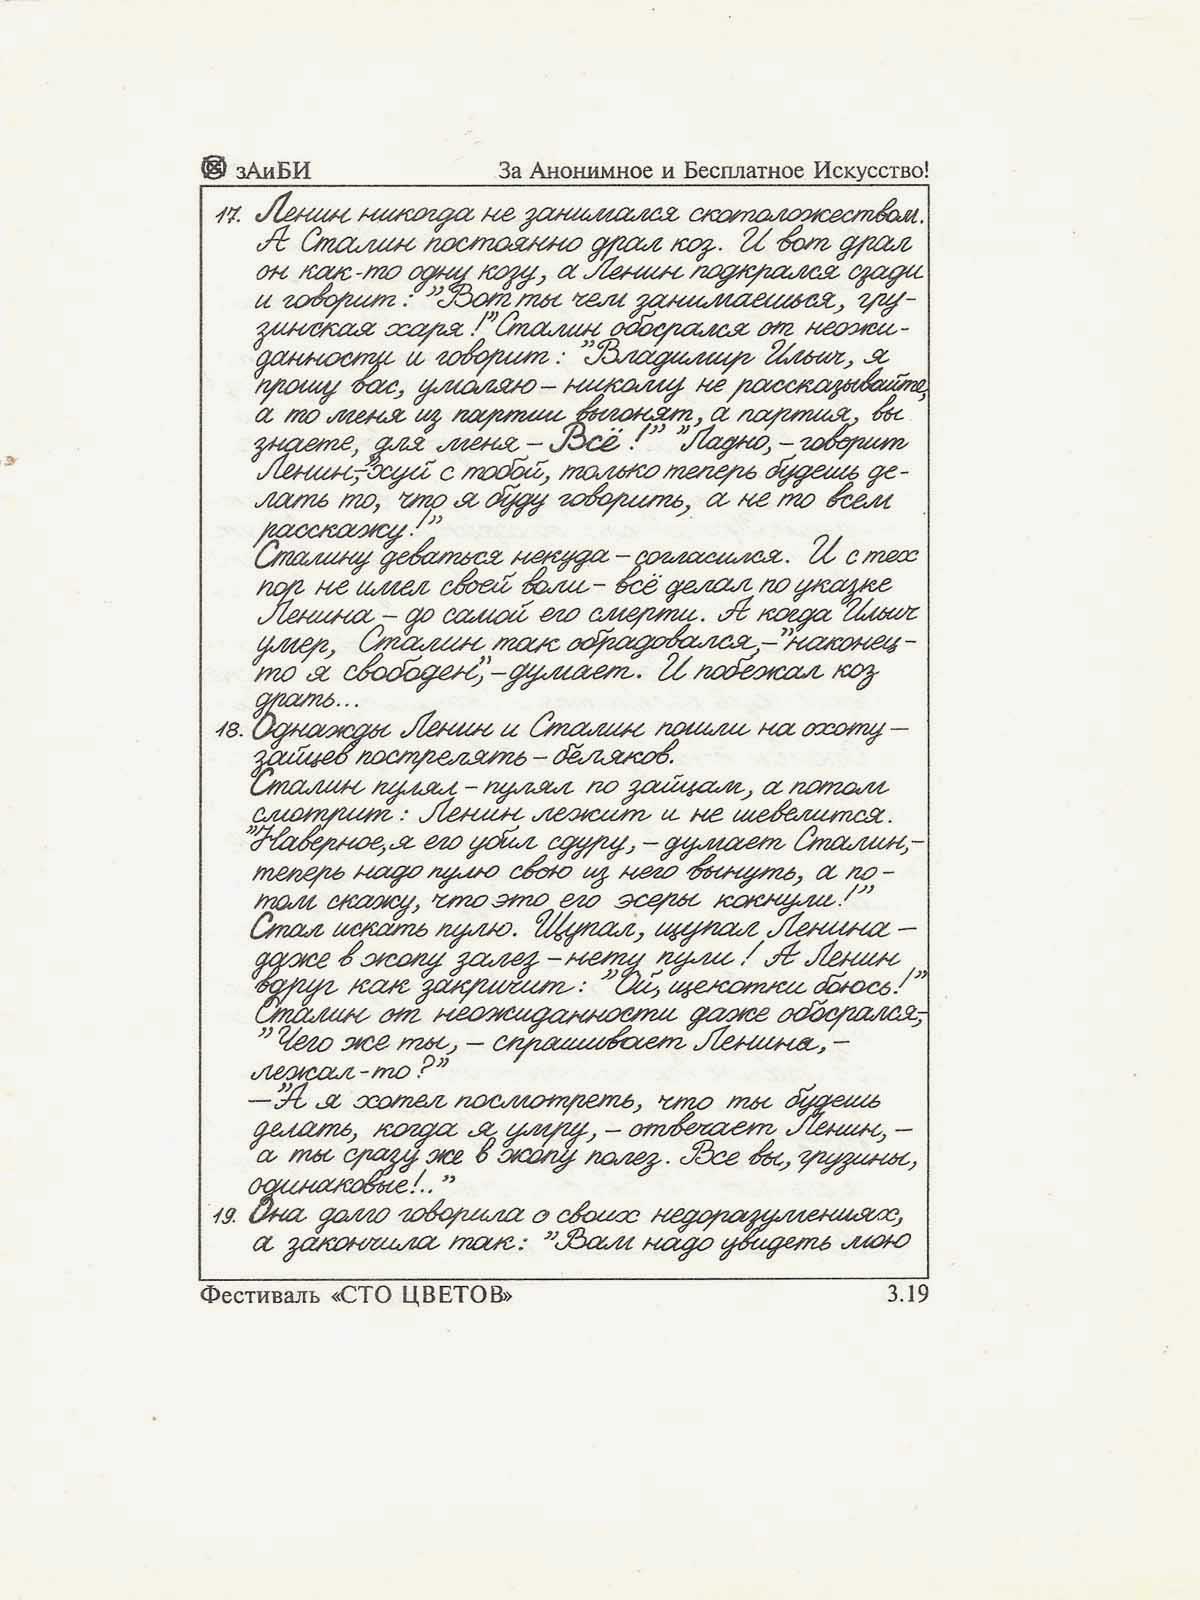 зАиБИ За Анонимное и Бесплатное Искусство!
17. Ленин никогда не занимался скотоложеством.
А Сталин постоянно драл коз. И вот драл
он как-то одну козу, а Ленин подкрался сзади
и говорит: "Вот ты чем занимаешься, гру-
зинская харя!" Сталин обосрался от неожи-
данности и говорит: "Владимир Ильич, я
прошу вас, умоляю – никому не рассказывайте,
а то меня из партии выгонят, а партия, вы
знаете, для меня – Всё!" "Ладно, – говорит
Ленин, – "хуй с тобой, только теперь будешь де-
лать то, что я буду говорить, а не то всем
расскажу!"
Сталину деваться некуда – согласился. И с тех
пор не имел своей воли – всё делал по указке
Ленина – до самой его смерти. А когда Ильич
умер, Сталин так обрадовался, – "наконец-
то я свободен", – думает. И побежал коз
драть...
18. Однажды Ленин и Сталин пошли на охоту –
зайцев пострелять – беляков.
Сталин пулял – пулял по зайцам, а потом
смотрит: Ленин лежит и не шевелится.
"Наверное, я его убил сдуру, – думает Сталин, –
теперь надо пулю свою из него вынуть, а по-
том скажу, что это его эсеры кокнули!"
Стал искать пулю. Щупал, щупал Ленина –
даже в жопу залез – нету пули! А Ленин
вдруг как закричит: "Ой, щекотки боюсь!"
Сталин от неожиданности даже обосрался, –
"Чего же ты, – спрашивает Ленина, –
лежал-то?"
– "А я хотел посмотреть, что ты будешь
делать, когда я умру, – отвечает Ленин, –
а ты сразу же в жопу полез. Все вы, грузины,
одинаковые!.."
19. Она долго говорила о своих недоразумениях,
а закончила так: "Вам надо увидеть мою
Фестиваль «СТО ЦВЕТОВ» 3.19